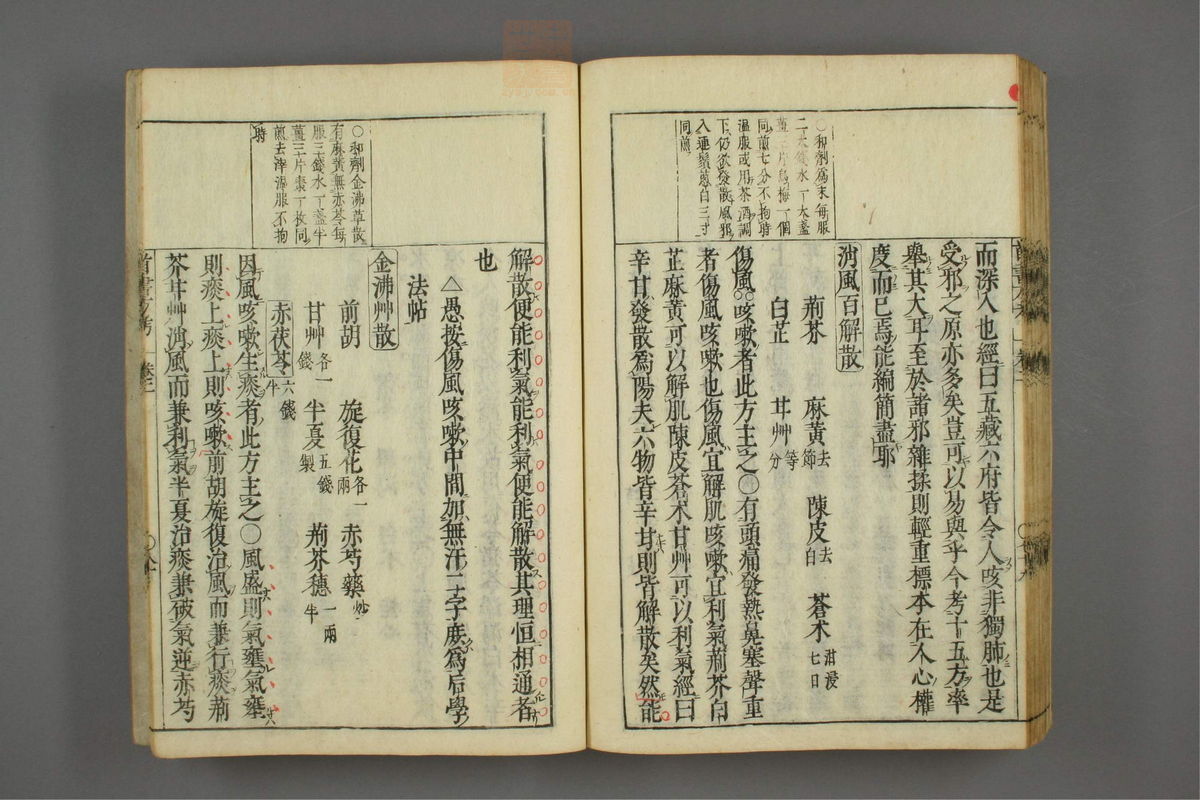 ○和劑爲末每服
二大錢水一大盞
薑三片烏梅一個
同煎七分不拘時
溫服或用茶酒調
下仍欲發散風邪
入連鬚蔥白三寸
同煎
而深入也經曰五藏六府皆令人咳非獨肺也是
受邪之原亦多矣豈可以易與乎今考十五方率
舉其大乎至於諸邪雜揉則輕重標本在人心權
度而已焉能編簡盡耶
消風百解散
荊芥 麻黃去節 陳皮去白 蒼朮泔浸七日
白芷 甘艸等分
傷風咳嗽者此方主之○有頭痛發熱鼻塞聲重
者傷風咳嗽也傷風宜解肌咳嗽宜利氣荊芥白
芷麻黃可以解肌陳皮蒼朮甘艸可以利氣經曰
辛甘發散爲陽夫六物皆辛甘則皆解散矣然能
○和劑金沸草散
有麻黃無赤苓每
服三錢水一盞半
薑三片棗一枚同
煎去滓溫服不拘
時
解散便能利氣能利氣便能解散其理恒相通者
也
△愚按傷風咳嗽中間加無汗二字庶爲后學
法帖
金沸艸散
前胡 旋復花各一兩 赤芍藥炒
甘艸各一錢 半夏五錢製 荊芥穗一兩半
赤茯苓六錢半
因風咳嗽生痰者此方主之○風盛則氣壅氣壅
則痰上痰上則咳嗽前胡旋復治風而兼行痰荊
芥甘艸消風而兼利氣半夏治痰兼破氣逆赤芍